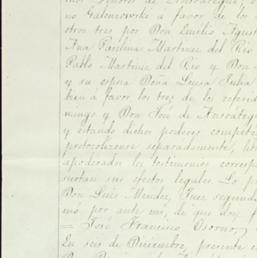 no Galouzowske a favor de los
otros tres por Don Emilio Agust
Ana Paulina Martinez del Rio
Pablo Martinez del Rio y Don
y su esposa Doña Luisa Julia
bien á favor los tres de los referid
mingo y Don José de Ansoateg
y estando dichos poderes compet
protocolizense separadamente, lib
apoderados los testimonios corresp
surtan sus efectos legales. Lo p
Don Luis Mendez, Juez segund
mó por ante mi, de que doy f
= José Francisco Osorno,
En seis de Diciembre, presente e